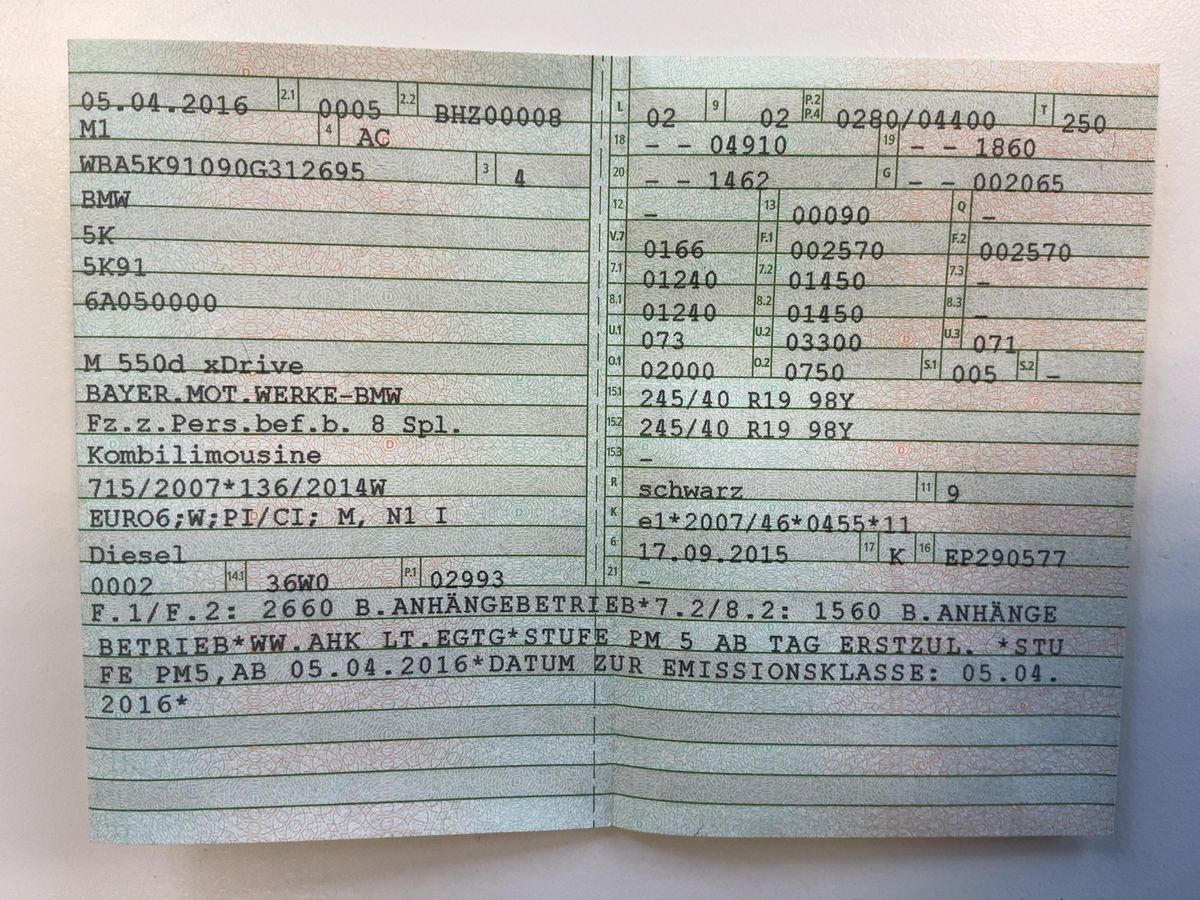 05.04.2016 2.1 0005 2.2 BHZ00008
M1 4 AC
WBA5K91090G312695 3 4
BMW
5K
5K91
6A050000
M 550d xDrive
BAYER.MOT.WERKE-BMW
Fz.z.Pers.bef.b. 8 Spl.
Kombilimousine
715/2007*136/2014W
EURO6;W;PI/CI; M, N1 I
Diesel
0002 14.1 36W0 P.1 02993
L 02 9 02 P.2 P.4 0280/04400 T 250
18 - - 04910 19 - - 1860
20 - - 1462 G - - 002065
12 - 13 00090 Q -
V.7 0166 F.1 002570 F.2 002570
7.1 01240 7.2 01450 7.3 -
8.1 01240 8.2 01450 8.3 -
U.1 073 U.2 03300 U.3 071
O.1 02000 O.2 0750 S.1 005 S.2 -
15.1 245/40 R19 98Y
15.2 245/40 R19 98Y
15.3 -
R schwarz 11 9
K e1*2007/46*0455*11
6 17.09.2015 17 K 16 EP290577
21 -
F.1/F.2: 2660 B.ANHÄNGEBETRIEB*7.2/8.2: 1560 B.ANHÄNGE
BETRIEB*WW.AHK LT.EGTG*STUFE PM 5 AB TAG ERSTZUL. *STU
FE PM5,AB 05.04.2016*DATUM ZUR EMISSIONSKLASSE: 05.04.
2016*